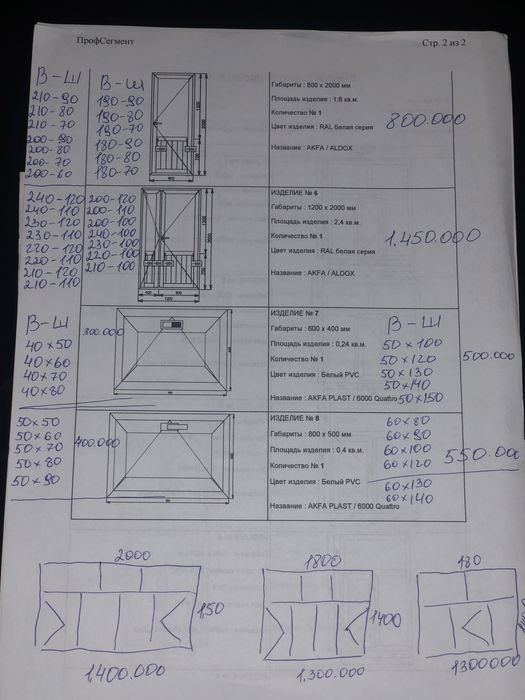 ПрофСегмент
Стр. 2 из 2
В-Ш
210-90
210-80
210-70
200-90
200-80
200-70
200-60
В-Ш
190-90
190-80
190-70
180-90
180-80
180-70
Габариты : 800 x 2000 мм
Площадь изделия : 1,6 кв.м.
Количество № 1
Цвет изделия : RAL белая серия
Название : AKFA / ALDOX
800.000
240-120
240-110
230-120
230-110
220-120
220-110
210-120
210-110
200-120
200-110
200-100
240-100
230-100
220-100
210-100
ИЗДЕЛИЕ № 6
Габариты : 1200 x 2000 мм
Площадь изделия : 2,4 кв.м.
Количество № 1
Цвет изделия : RAL белая серия
Название : AKFA / ALDOX
1.450.000
В-Ш
40x50
40x60
40x70
40x80
300.000
ИЗДЕЛИЕ № 7
Габариты : 600 x 400 мм
Площадь изделия : 0,24 кв.м.
Количество № 1
Цвет изделия : Белый PVC
Название : AKFA PLAST / 6000 Quattro
В-Ш
50x100
50x120
50x130
50x140
50x150
500.000
50x50
50x60
50x70
50x80
50x90
400.000
ИЗДЕЛИЕ № 8
Габариты : 800 x 500 мм
Площадь изделия : 0,4 кв.м.
Количество № 1
Цвет изделия : Белый PVC
Название : AKFA PLAST / 6000 Quattro
60x80
60x90
60x100
60x120
60x130
60x140
550.00
2000
1,50
1.400.000
1800
1400
1.300.000
180
1300000